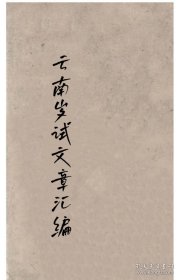 云南岁试文章汇编